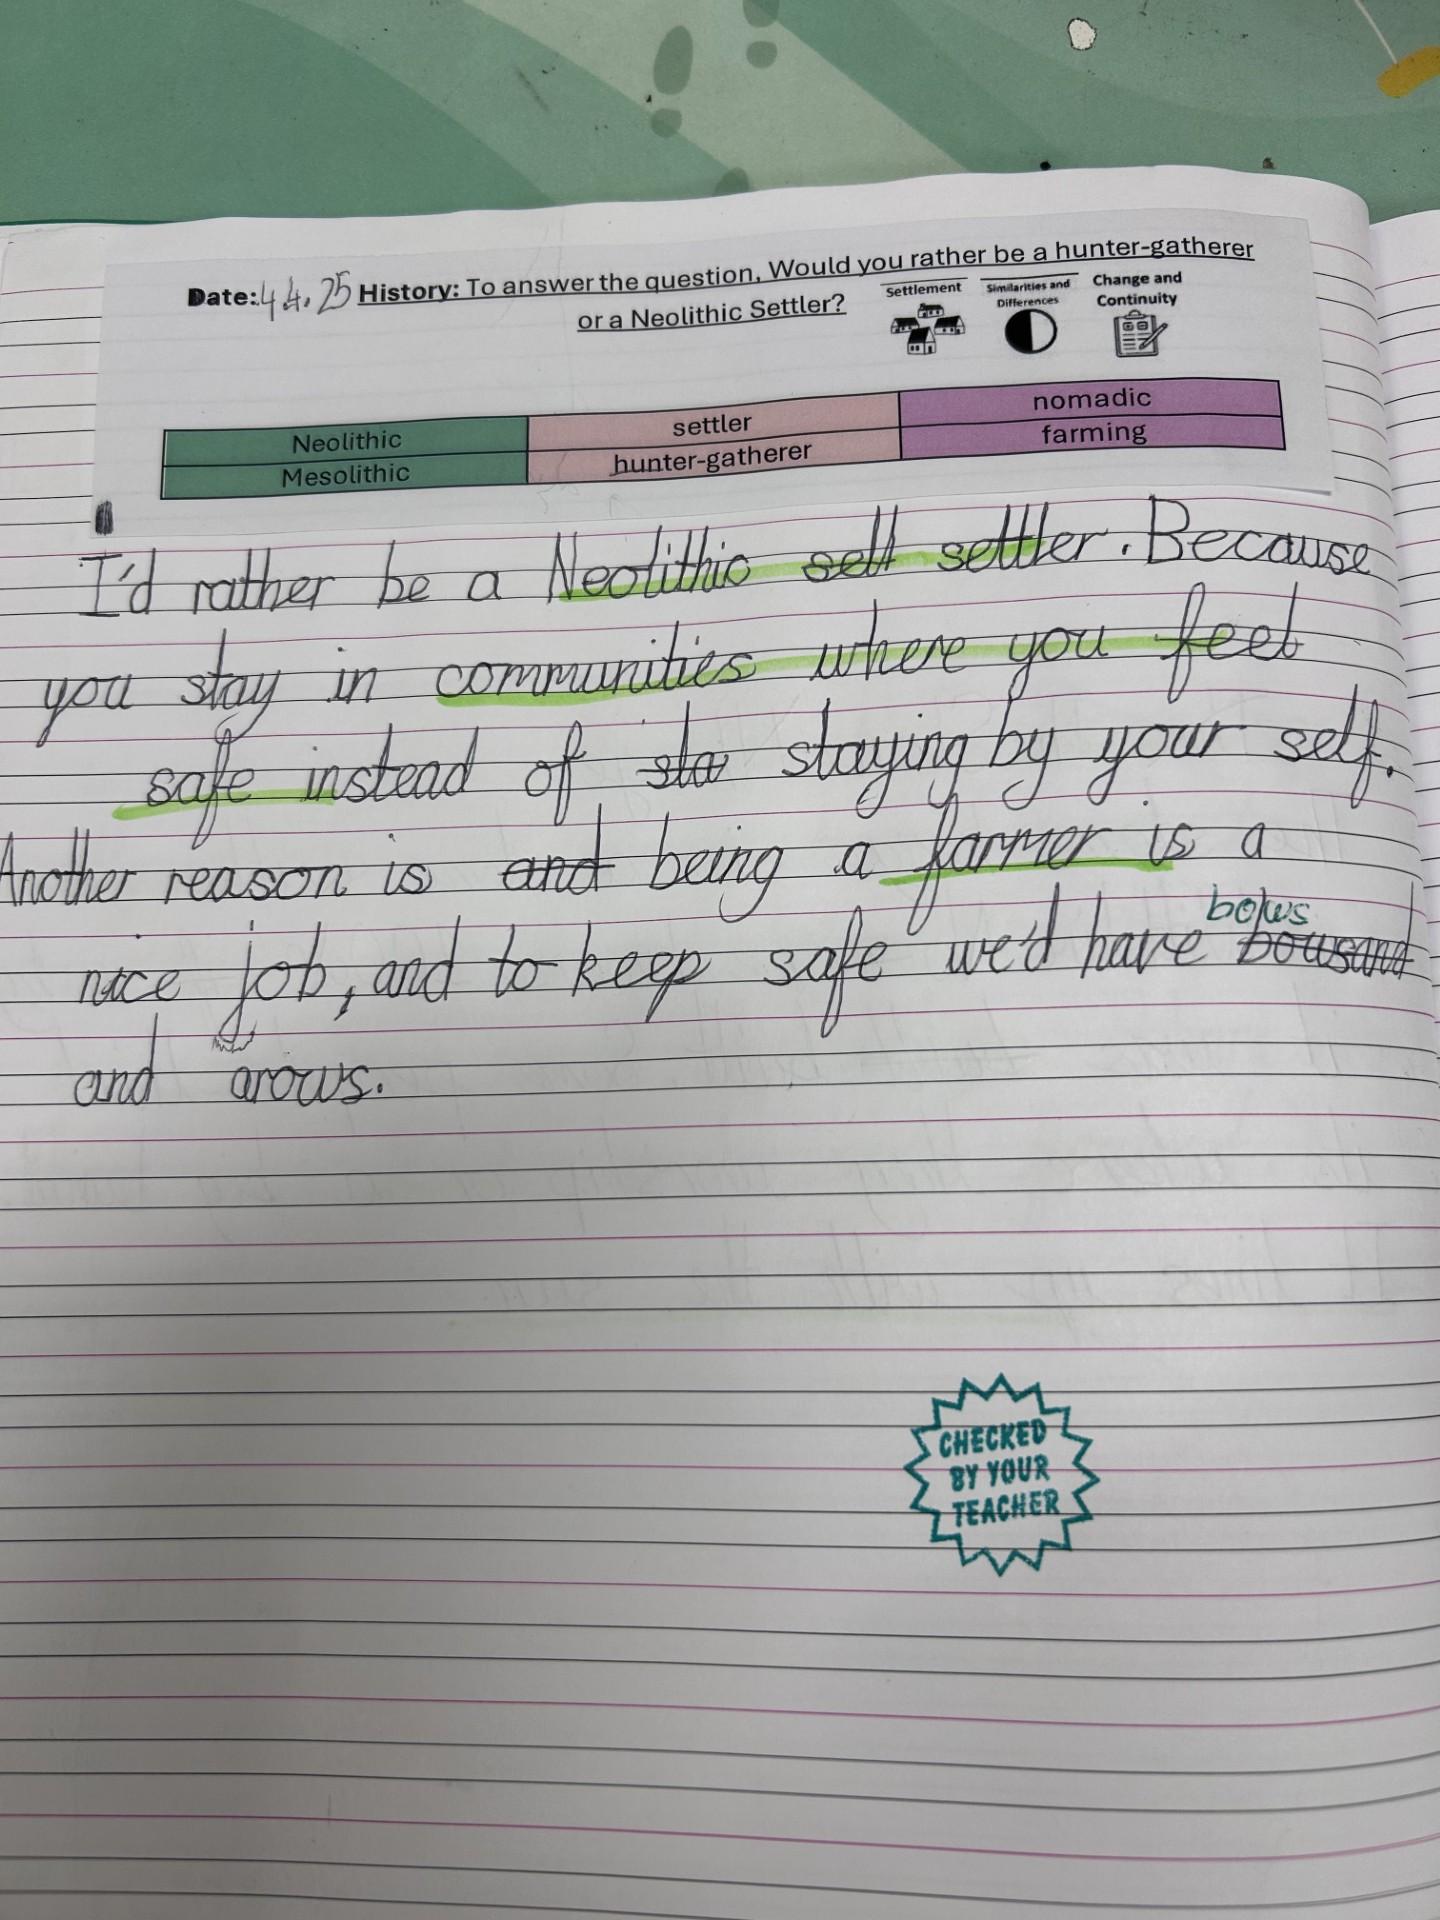 Date: 4.4.25 History: To answer the question, Would you rather be a hunter-gatherer
or a Neolithic Settler?
Settlement
Similarities and
Differences
Change and
Continuity
Neolithic settler nomadic
Mesolithic hunter-gatherer farming
I'd rather be a Neolithic sett settler. Because
you stay in communities where you feel
safe instead of sta staying by your self.
Another reason is and being a farmer is a
bows
nice job, and to keep safe we'd have bowsand
and arows.
CHECKED
BY YOUR
TEACHER